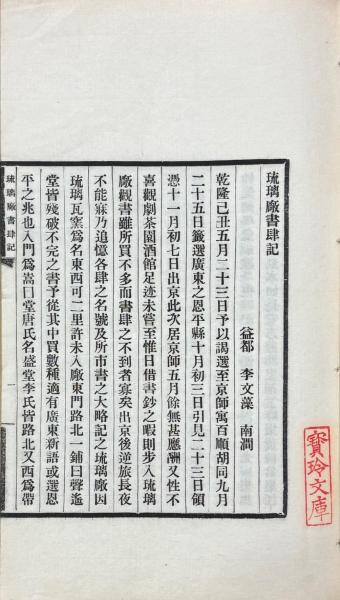 琉璃廠書肆記
益都　李文藻　南澗
乾隆己丑五月二十三日予以謁選至京師寓百順胡同九月
二十五日籤選廣東之恩平縣十月初三日引見二十三日領
憑十一月初七日出京此次居京師五月餘無甚應酬又性不
喜觀劇茶園酒館足迹未嘗至惟日借書鈔之暇則步入琉璃
廠觀書雖所買不多而書肆之不到者寡矣出京後逆旅長夜
不能寐乃追憶各肆之名號及所市書之大略記之琉璃廠因
琉璃瓦窰爲名東西可二里許未入廠東門路北一鋪曰聲遙
堂皆殘破不完之書予從其中買數種適有廣東新語或選恩
平之兆也入門爲嵩□堂唐氏名盛堂李氏皆路北又西爲帶
琉璃廠書肆記
一
寶玲文庫